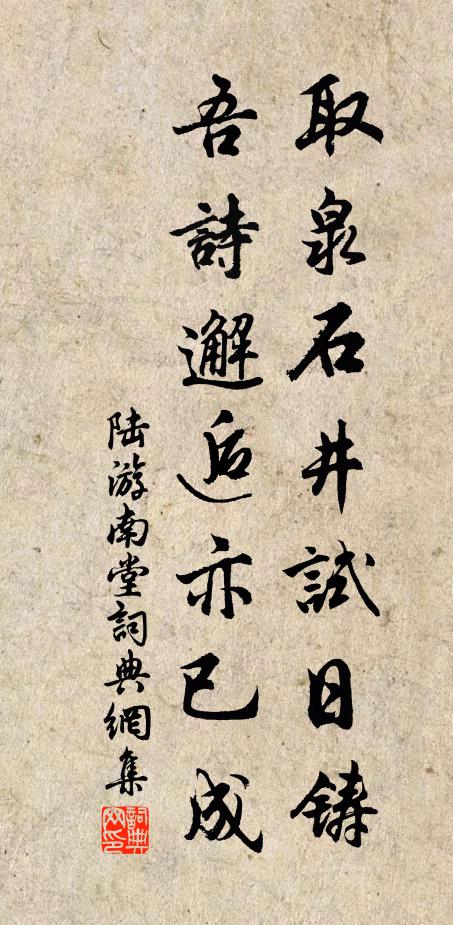 取泉石井試日鑄
吾詩邂逅亦已成
陆游南堂詞典網集
詞典網印